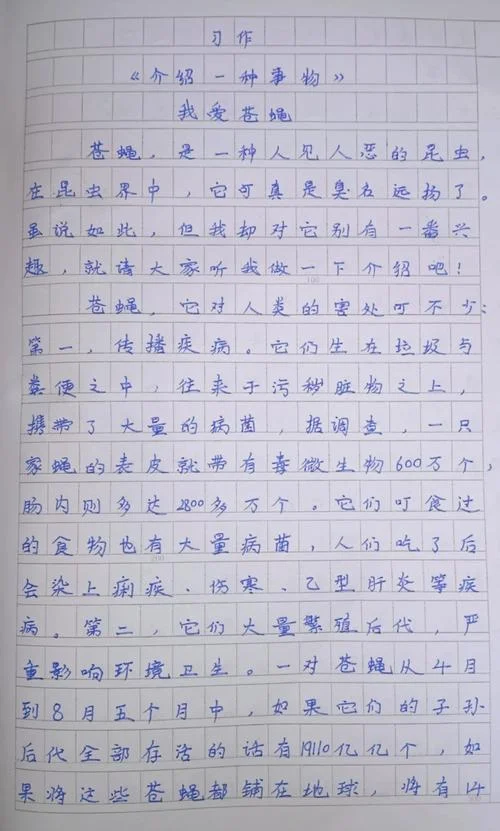 习作
《介绍一种事物》
我爱苍蝇
苍蝇，是一种人见人恶的昆虫，
在昆虫界中，它可真是臭名远扬了。
虽说如此，但我却对它别有一番兴
趣，就请大家听我做一下介绍吧！
100
苍蝇，它对人类的害处可不少：
第一，传播疾病。它们生在垃圾与
粪便之中，往来于污秽脏物之上，
携带了大量的病菌，据调查，一只
家蝇的表皮就带有毒微生物600万个，
肠内则多达2800多万个。它们叮食过
的食物也有大量病菌，人们吃了后
200
会染上痢疾、伤寒、乙型肝炎等疾
病。第二，它们大量繁殖后代，严
重影响环境卫生。一对苍蝇从4月
到8月五个月中，如果它们的子孙
后代全部存活的话有19110亿亿个，如
果将这些苍蝇都铺在地球，将有14
300